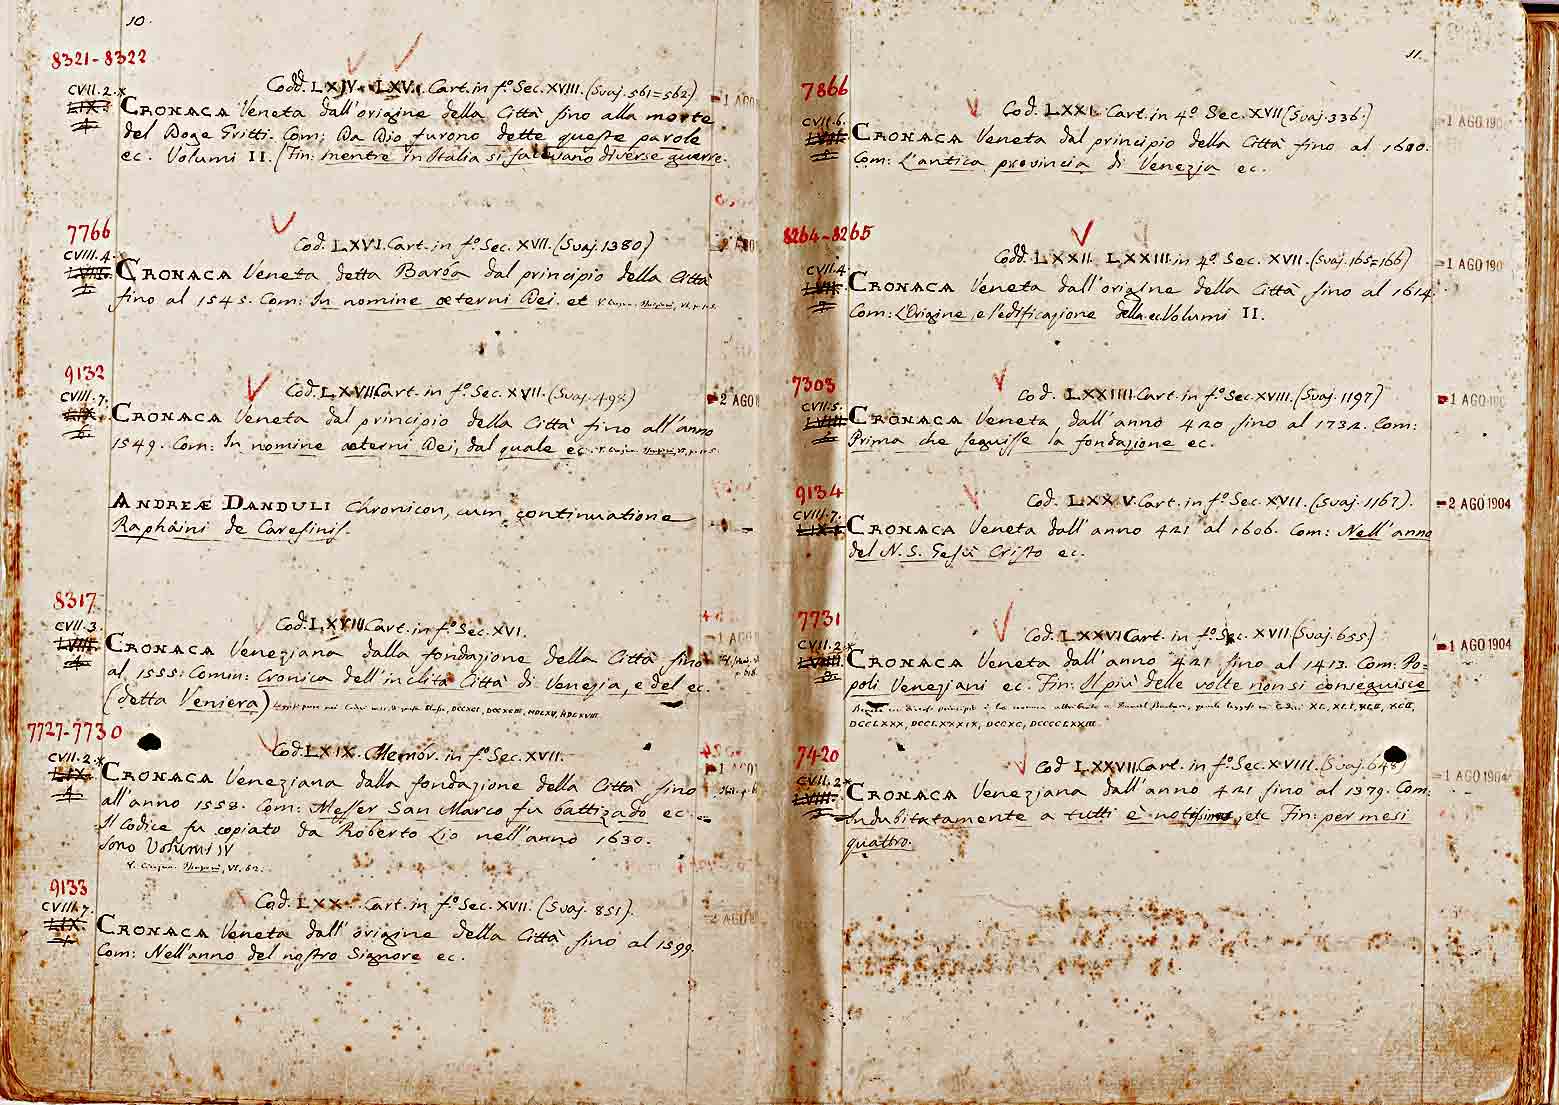 10.
8321-8322
Codd. LXIV. LXV. Cart. in fº. Sec. XVIII. (Svaj. 561=562)
CVII. 2. x
1 AGO
CRONACA Veneta dall'origine della Città fino alla morte
del Doge Gritti. Com: Da Dio furono dette queste parole
ec. Volumi II. (Fin: mentre in Italia si facevano diverse guerre.
7766
Cod. LXVI. Cart. in fº. Sec. XVII. (Svaj. 1380)
CVIII. 4.
2 AGO
CRONACA Veneta detta Barba dal principio della Città
fino al 1545. Com: In nomine æterni Dei. et
9132
Cod. LXVII. Cart. in fº. Sec. XVII. (Svaj. 498)
CVIII. 7.
2 AGO
CRONACA Veneta dal principio della Città fino all'anno
1549. Com: In nomine æterni Dei, dal quale ec.
ANDREÆ DANDULI Chronicon, cum continuatione
Raphaini de Caresinis.
8317
Cod. LXVIII. Cart. in fº. Sec. XVI.
CVII. 3.
1 AGO
CRONACA Veneziana dalla fondazione della Città fino
al 1555: Comin: Cronica dell'inclita Città di Venezia, e del ec.
(detta Veniera)
7727-7730
Cod. LXIX. Membr. in fº. Sec. XVII.
CVII. 2. x
1 AGO
CRONACA Veneziana dalla fondazione della Città fino
all'anno 1558. Com: Messer San Marco fu battizado ec.
Il codice fu copiato da Roberto Lio nell'anno 1630.
sono Volumi IV
VI, 62.
9133
Cod. LXX. Cart. in fº. Sec. XVII. (Svaj. 851).
CVIII. 7.
2 AGO
CRONACA Veneta dall'origine della Città fino al 1599.
Com: Nell'anno del nostro Signore ec.
11.
7866
Cod. LXXI. Cart. in 4º. Sec. XVII (Svaj. 336.)
CVII. 6.
1 AGO 190
CRONACA Veneta dal principio della Città fino al 1680.
Com: L'antica provincia di Venezia ec.
8264-8265
Codd. LXXII. LXXIII. in 4º. Sec. XVII. (Svaj. 165=166)
CVII. 4
1 AGO 190
CRONACA Veneta dall'origine della Città fino al 1614.
Com: L'Origine, e l'edificazione della ec. Volumi II.
7303
Cod. LXXIIII. Cart. in fº. Sec. XVIII. (Svaj. 1197)
CVII. 5.
1 AGO 190
CRONACA Veneta dall'anno 420 fino al 1732. Com:
Prima che seguisse la fondazione ec.
9134
Cod. LXXV. Cart. in fº. Sec. XVII. (Svaj. 1167).
CVIII. 7.
2 AGO 1904
CRONACA Veneta dall'anno 421 al 1606. Com: Nell'anno
del N. S. Gesù Cristo ec.
7731
Cod. LXXVI. Cart. in fº. Sec. XVII (Svaj. 655)
CVII. 2. x
1 AGO 1904
CRONACA Veneta dall'anno 421 fino al 1413. Com: Po=
poli Veneziani ec. Fin: Il più delle volte non si conseguisce
DCCLXXX, DCCLXXXIX, DCCXC, DCCCCLXXIII.
7420
Cod LXXVII. Cart. in fº. Sec. XVIII. (Svaj. 648)
CVII. 2. x
1 AGO 1904
CRONACA Veneziana dall'anno 421 fino al 1379. Com:
Indubitatamente a tutti è notissimo, etc Fin: per mesi
quattro.